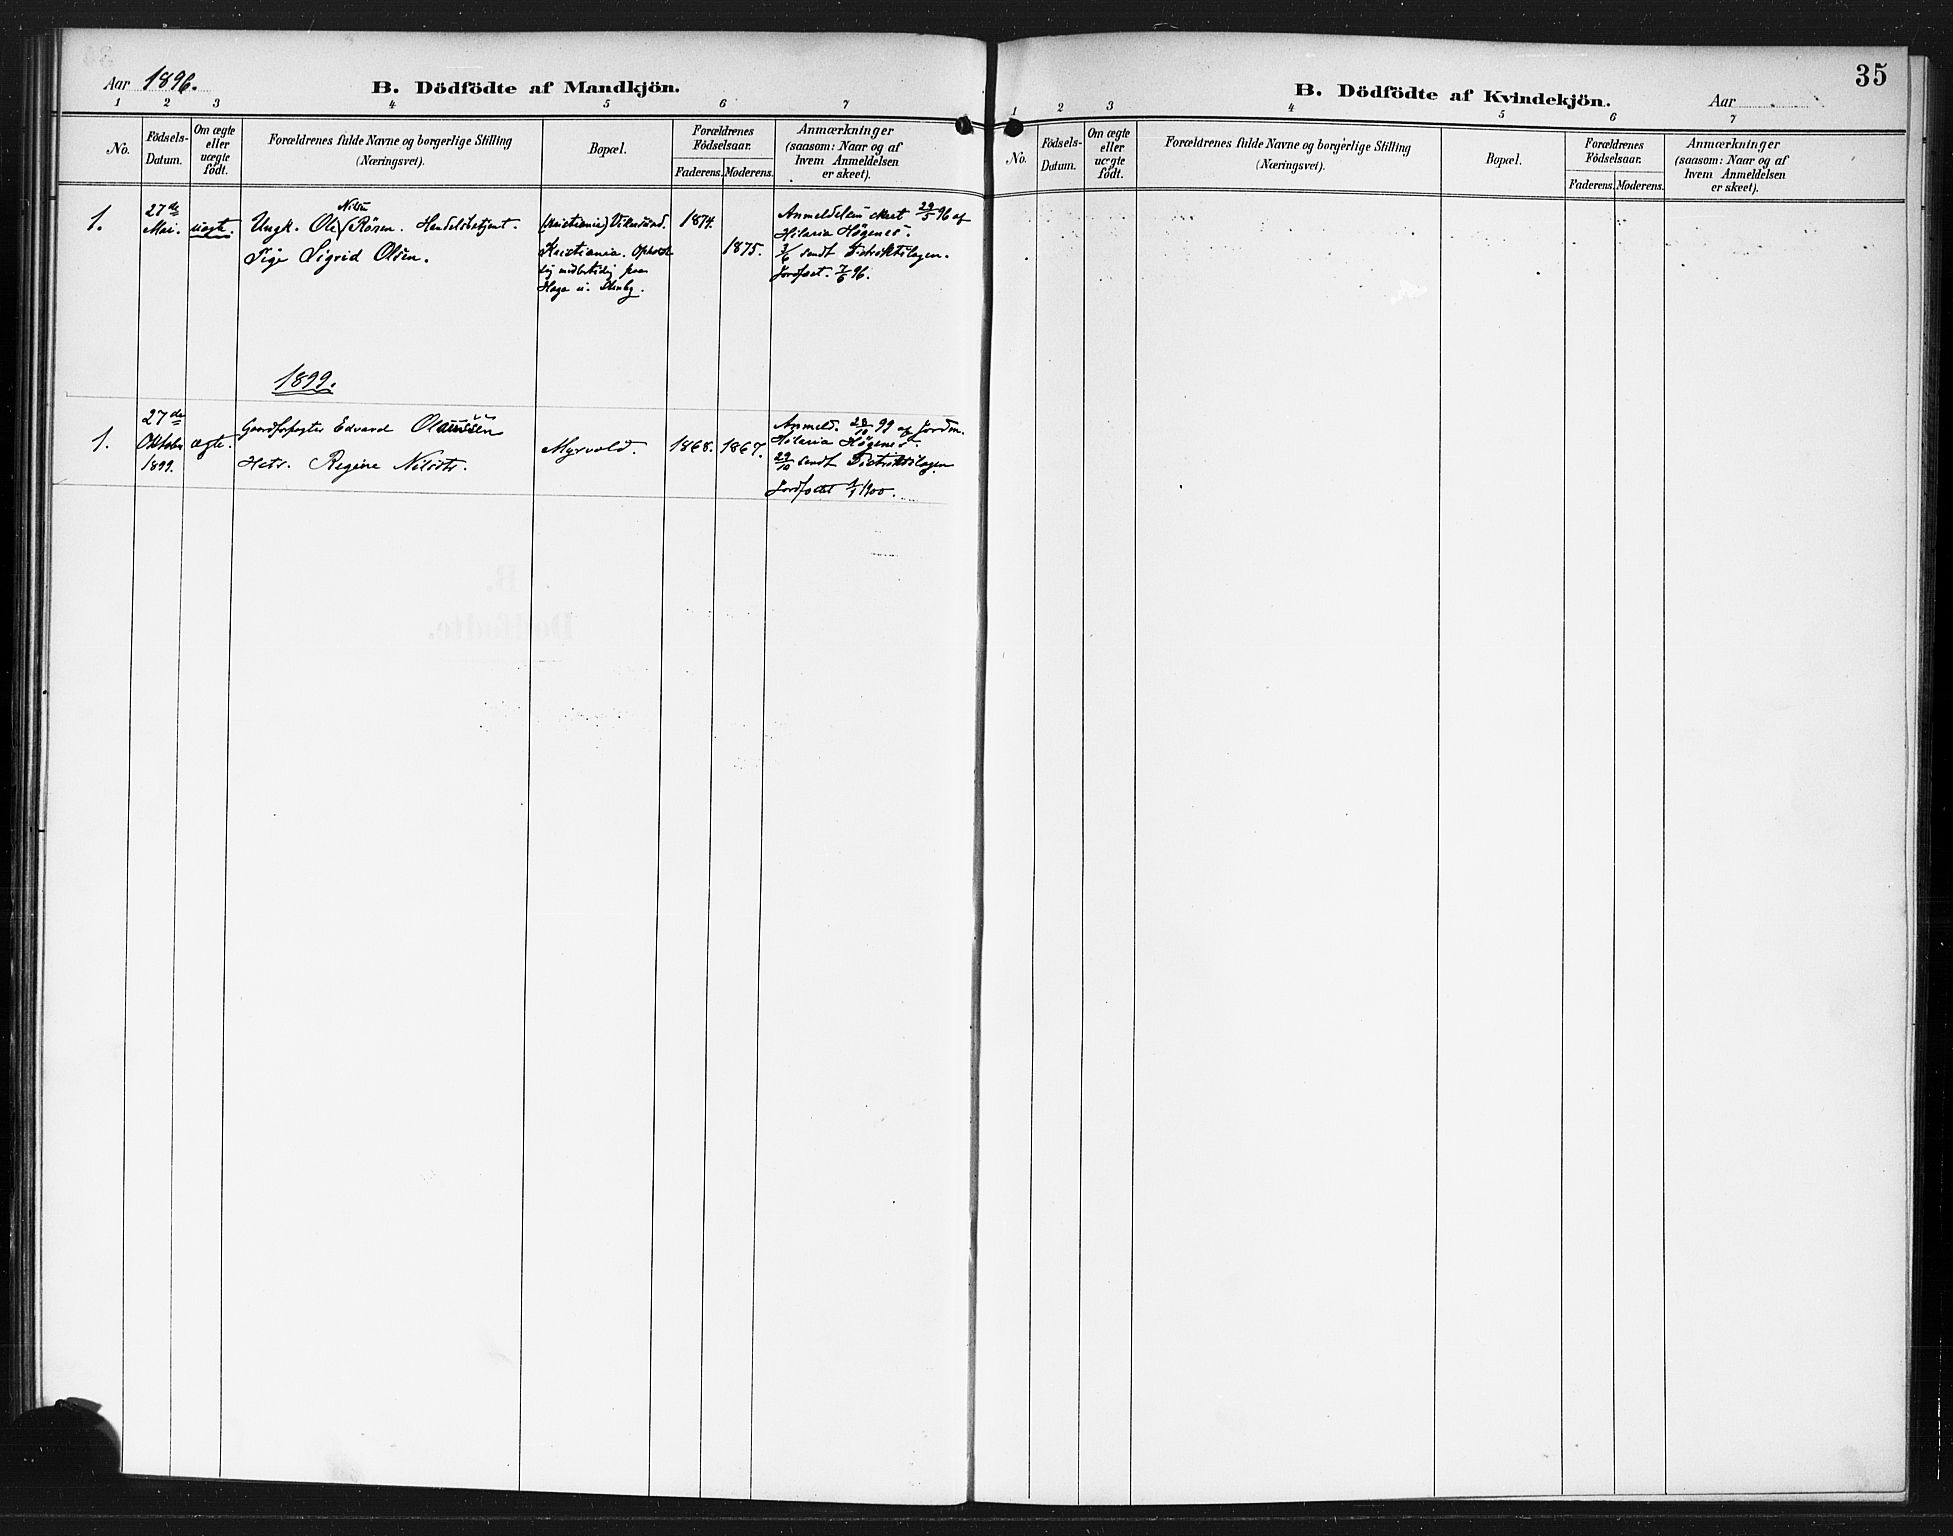 Aar 1896.
B. Dödfödte af Mandkjön.
1 2 3 4 5 6 7
No.
Födsels-Datum.
Om ægte eller uægte födt.
Forældrenes fulde Navne og borgerlige Stilling (Næringsvei).
Bopæl.
Forældrenes Födselsaar.
Faderens. Moderens.
Anmærkninger (saasom: Naar og af hvem Anmeldelsen er skeet).
1.
27de
Mai.
uægte.
Nilsen
Ungk. Ole (Rören. Handelsbetjent.
Pige Sigrid Olsen.
(Kristiania) Vikersund.
Kristiania. Opholdt
sig midlertidig paa
Hage u.
1874.
1875.
Anmeldelsen skeet 29/5 96 af
Hilaria Høgenes.
3/6 sendt Distriktslægen.
Jordfæst. 7/6 96.
1899.
1.
27de
Oktober
1899.
ægte.
Gaardforpagter Edvard Olaussen
Hstr. Regine Nilsdtr.
Myrvold.
1868. 1867.
Anmeld. 28/10 99 af Jordm.
Hilaria Høgenes.
29/10 sendt Distriktslægen
Jordfæstet 1/1 1900.
35
B. Dödfödte af Kvindekjön.
Aar
1 2 3 4 5 6 7
No.
Födsels-Datum.
Om ægte eller uægte födt.
Forældrenes fulde Navne og borgerlige Stilling (Næringsvei).
Bopæl.
Forældrenes Födselsaar.
Faderens. Moderens.
Anmærkninger (saasom: Naar og af hvem Anmeldelsen er skeet).